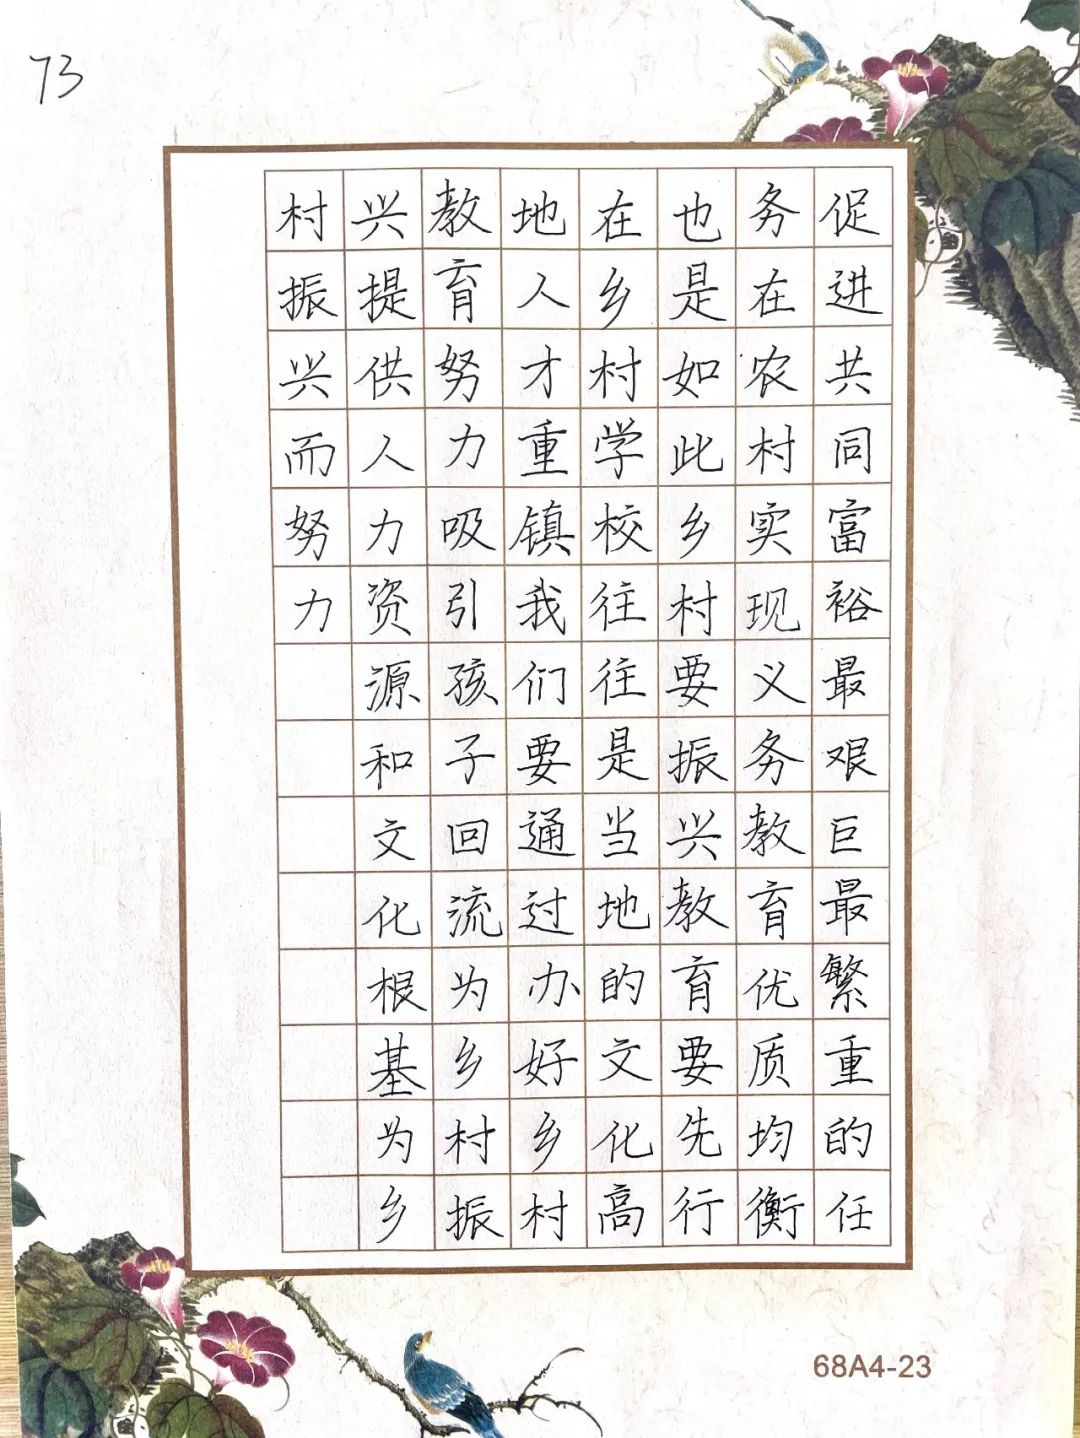 73
促进共同富裕最艰巨最繁重的任
务在农村实现义务教育优质均衡
也是如此乡村要振兴教育要先行
在乡村学校往往是当地的文化高
地人才重镇我们要通过办好乡村
教育努力吸引孩子回流为乡村振
兴提供人力资源和文化根基为乡
村振兴而努力
68A4-23